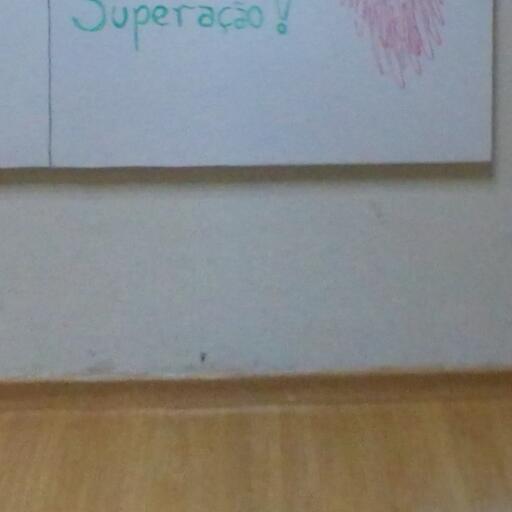 Superação!